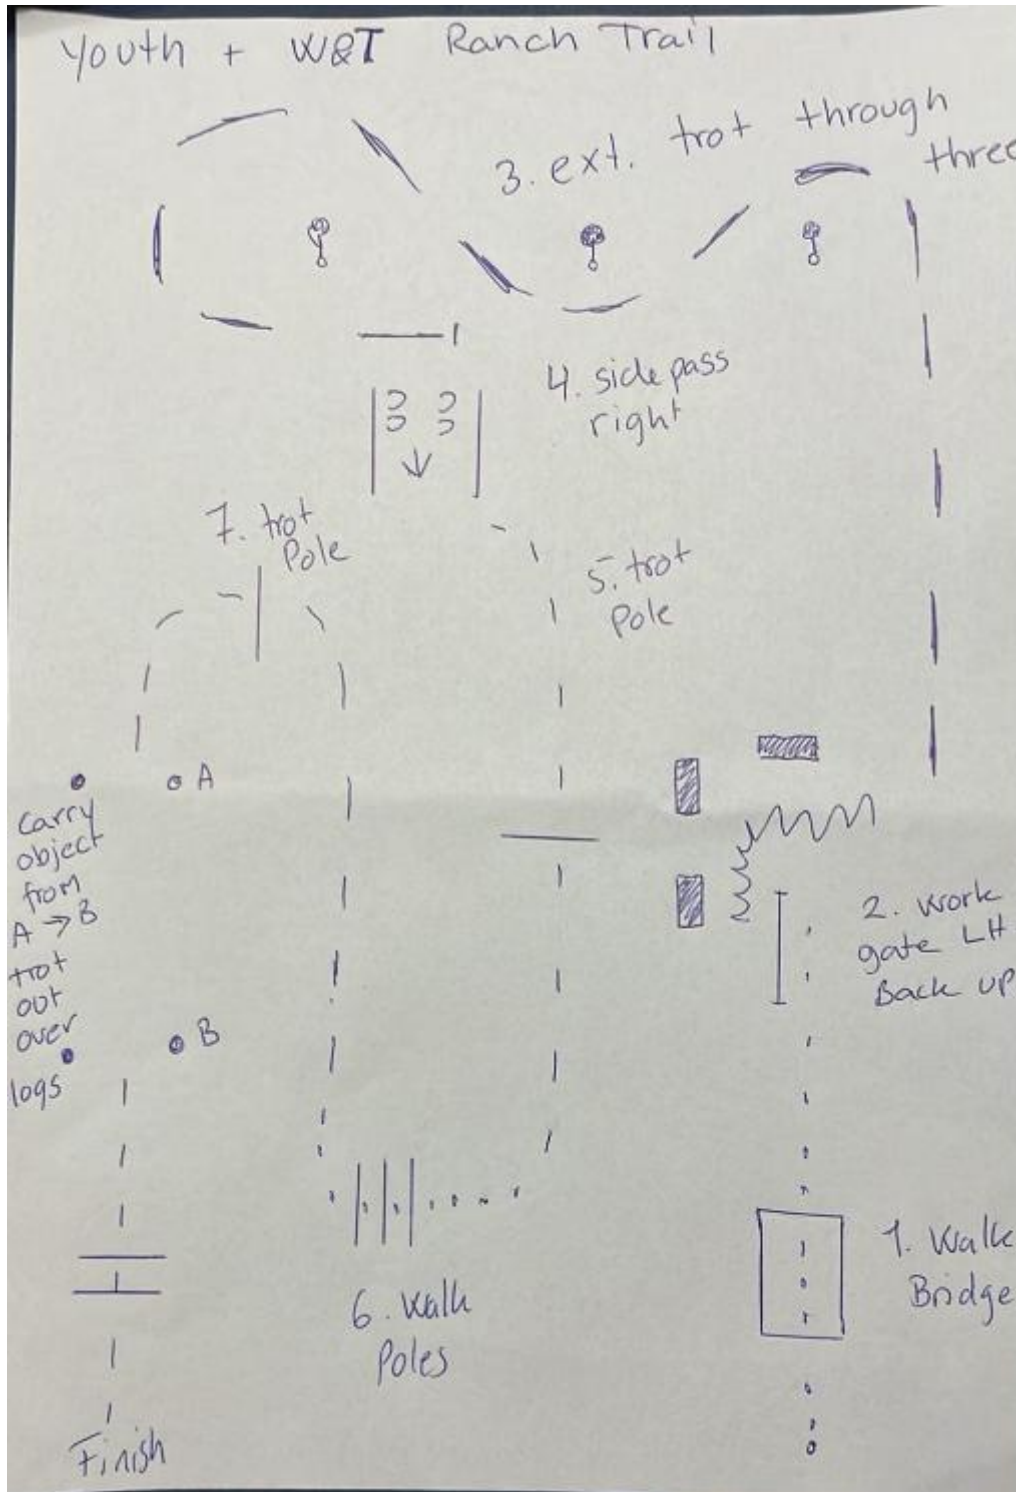 Youth + W&T Ranch Trail
3. ext. trot through
three
4. side pass
right
7. trot
Pole
5. trot
Pole
A
Carry
object
from
A → B
trot
out
over
logs
B
2. work
gate LH
Back up
1. Walk
Bridge
6. Walk
Poles
Finish